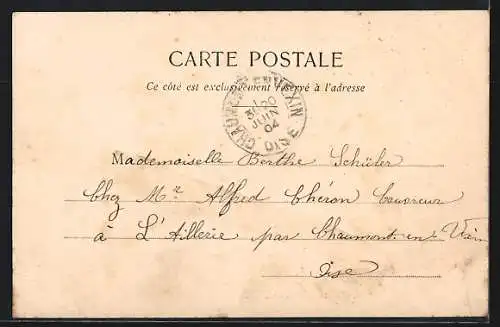 CARTE POSTALE
Ce côté est exclusivement réservé à l'adresse
CHAUMONT-EN-VEXIN
30
JUIN
04
OISE
Mademoiselle Berthe Schüler
Chez Mr Alfred Chéron Couvreur
à L'Aillerie par Chaumont en Vexin
Oise